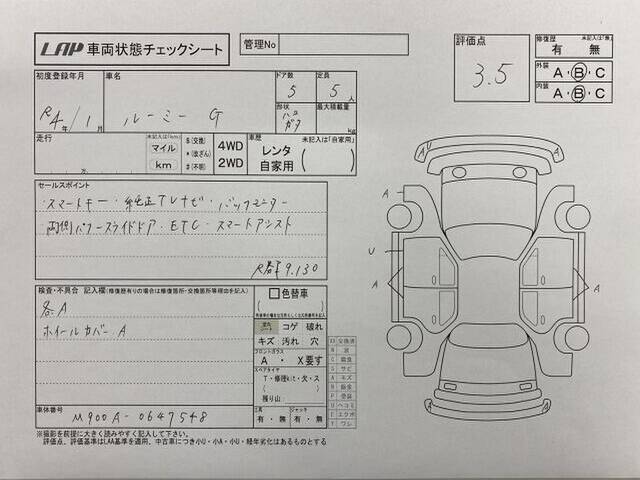 LAP 車両状態チェックシート
管理No
評価点
3.5
修復歴 未記入は「無」
有 無
外装 A・B・C
内装 A・B・C
初度登録年月 車名 ドア数 定員
R4年/1月 ルーミー G 5 5人
形状 最大積載量
ハコ
kg
走行 未記入は(km) $(交換) 4WD 車歴 未記入は「自家用」
マイル *(改ざん) レンタ
km #(不明) 2WD 自家用 ( )
万
セールスポイント
・スマートキー・純正TVナビ・バックモニター
両側パワースライドドア・ETC・スマートアシスト
9.130
検査・不具合 記入欄(修復歴有りの場合は修復箇所・交換箇所等理由を記入)
各A
ホイールカバー A
色替車
( )
コゲ 破れ
キズ 汚れ 穴
フロントガラス
A ・ X要す
スペアタイヤ
T・修理kit・欠・ス
残り山
( )
工具 ジャッキ
有・無 有・無
XX 交換済
W 波
C 腐食
S サビ
A キズ
P 塗装
U ヘコミ
E エクボ
Y ワレ
車体番号 M900A-0647548
※撮影を前提に大きく読みやすく記入して下さい。
評価点、評価基準はLAA基準を適用、中古車につき小U・小A・小U・経年劣化はあるものとする
AU
A
U
A
A
A